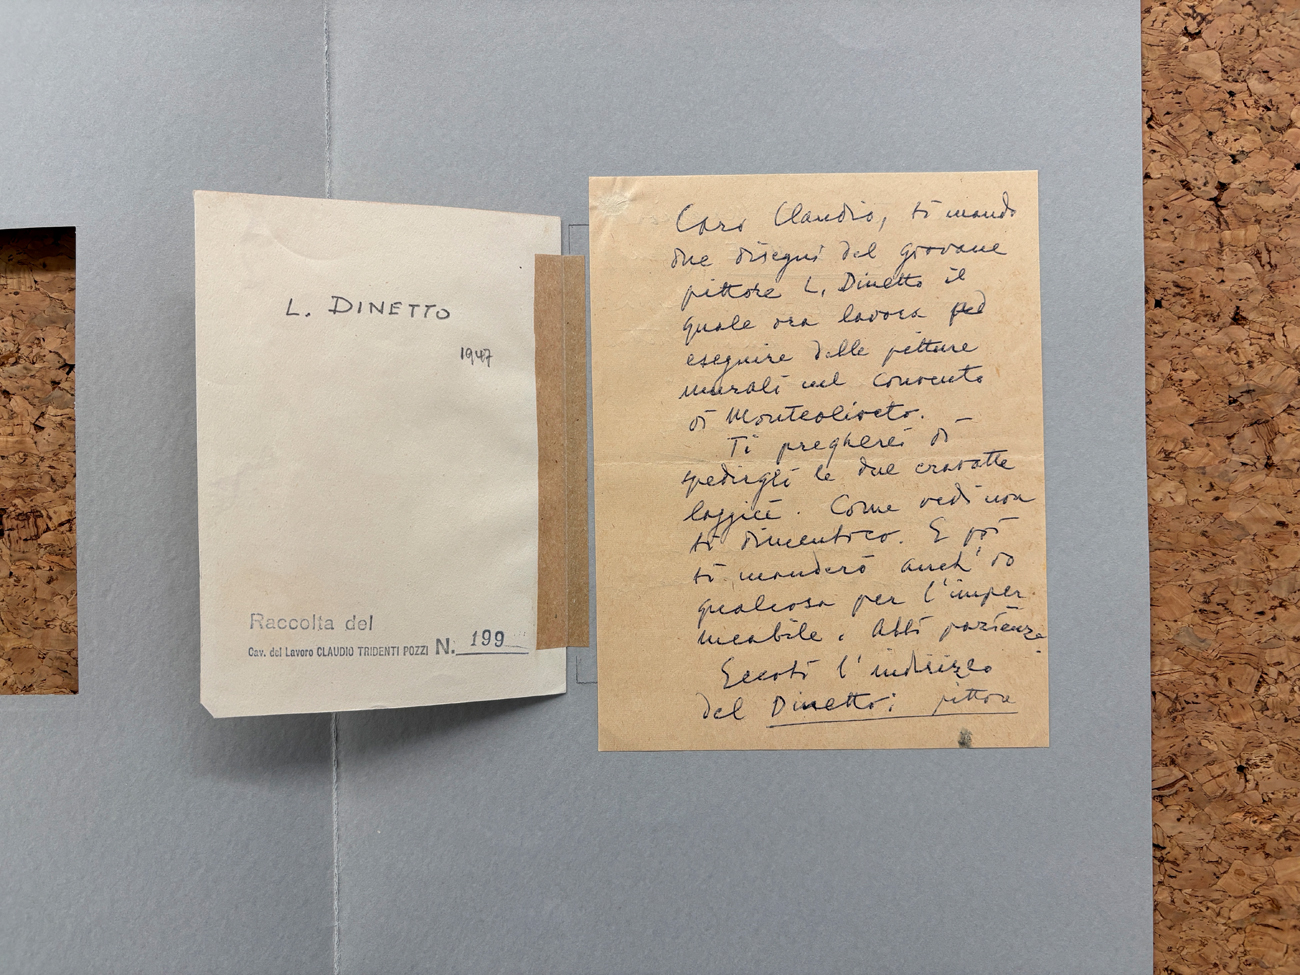 L. DINETTO
1947
Raccolta del
Cav. del Lavoro CLAUDIO TRIDENTI POZZI N. 199
Caro Claudio, ti mando
due disegni del giovane
pittore L. Dinetto il
quale ora lavora ad
eseguire delle pitture
murali nel convento
di Monteoliveto.
Ti pregherei di
spedirgli le due cravatte
Come vedi non
ti dimentico. E poi
ti manderò anch'io
qualcosa per l'imper
meabile. Abbi pazienza
Eccoti l'indirizzo
del Dinetto: pittore